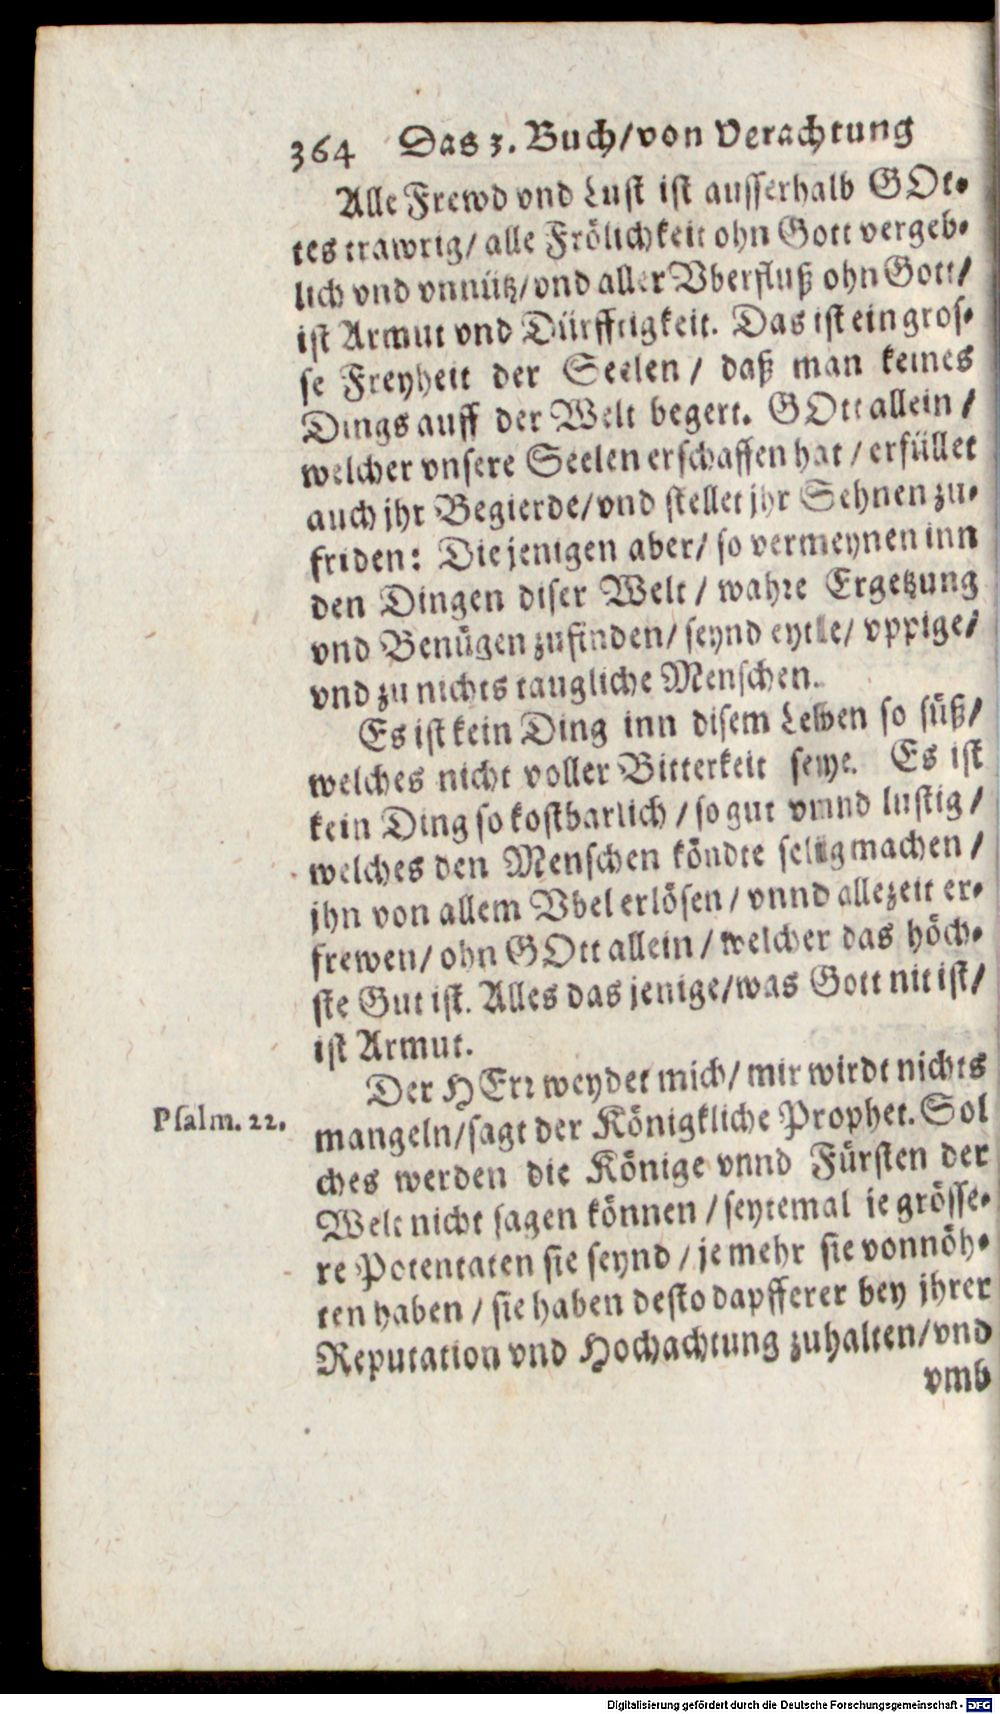 364 Das 3. Buch/von Verachtung
Alle Frewd vnd Lust ist ausserhalb GOt-
tes trawrig/ alle Frölichkeit ohn Gott vergeb-
lich vnd vnnütz/vnd aller Vberfluß ohn Gott/
ist Armut vnd Dürfftigkeit. Das ist ein gros-
se Freyheit der Seelen / daß man keines
Dings auff der Welt begert. GOtt allein /
welcher vnsere Seelen erschaffen hat / erfüllet
auch jhr Begierde/vnd stellet jhr Sehnen zu-
friden: Die jenigen aber/ so vermeynen inn
den Dingen diser Welt / wahre Ergetzung
vnd Benügen zufinden/ seynd eytle/ vppige/
vnd zu nichts taugliche Menschen.
Es ist kein Ding inn disem Leben so süß/
welches nicht voller Bitterkeit seye. Es ist
kein Ding so kostbarlich / so gut vnnd lustig /
welches den Menschen köndte selig machen /
jhn von allem Vbel erlösen / vnnd allezeit er-
frewen/ ohn GOtt allein / welcher das höch-
ste Gut ist. Alles das jenige/was Gott nit ist/
ist Armut.
Der HErr weydet mich/ mir wirdt nichts
Psalm. 22. mangeln/sagt der Königkliche Prophet. Sol
ches werden die Könige vnnd Fürsten der
Welt nicht sagen können / seytemal je grösse-
re Potentaten sie seynd / je mehr sie vonnöh-
ten haben / sie haben desto dapfferer bey jhrer
Reputation vnd Hochachtung zuhalten/vnd
vmb
Digitalisierung gefördert durch die Deutsche Forschungsgemeinschaft - DFG